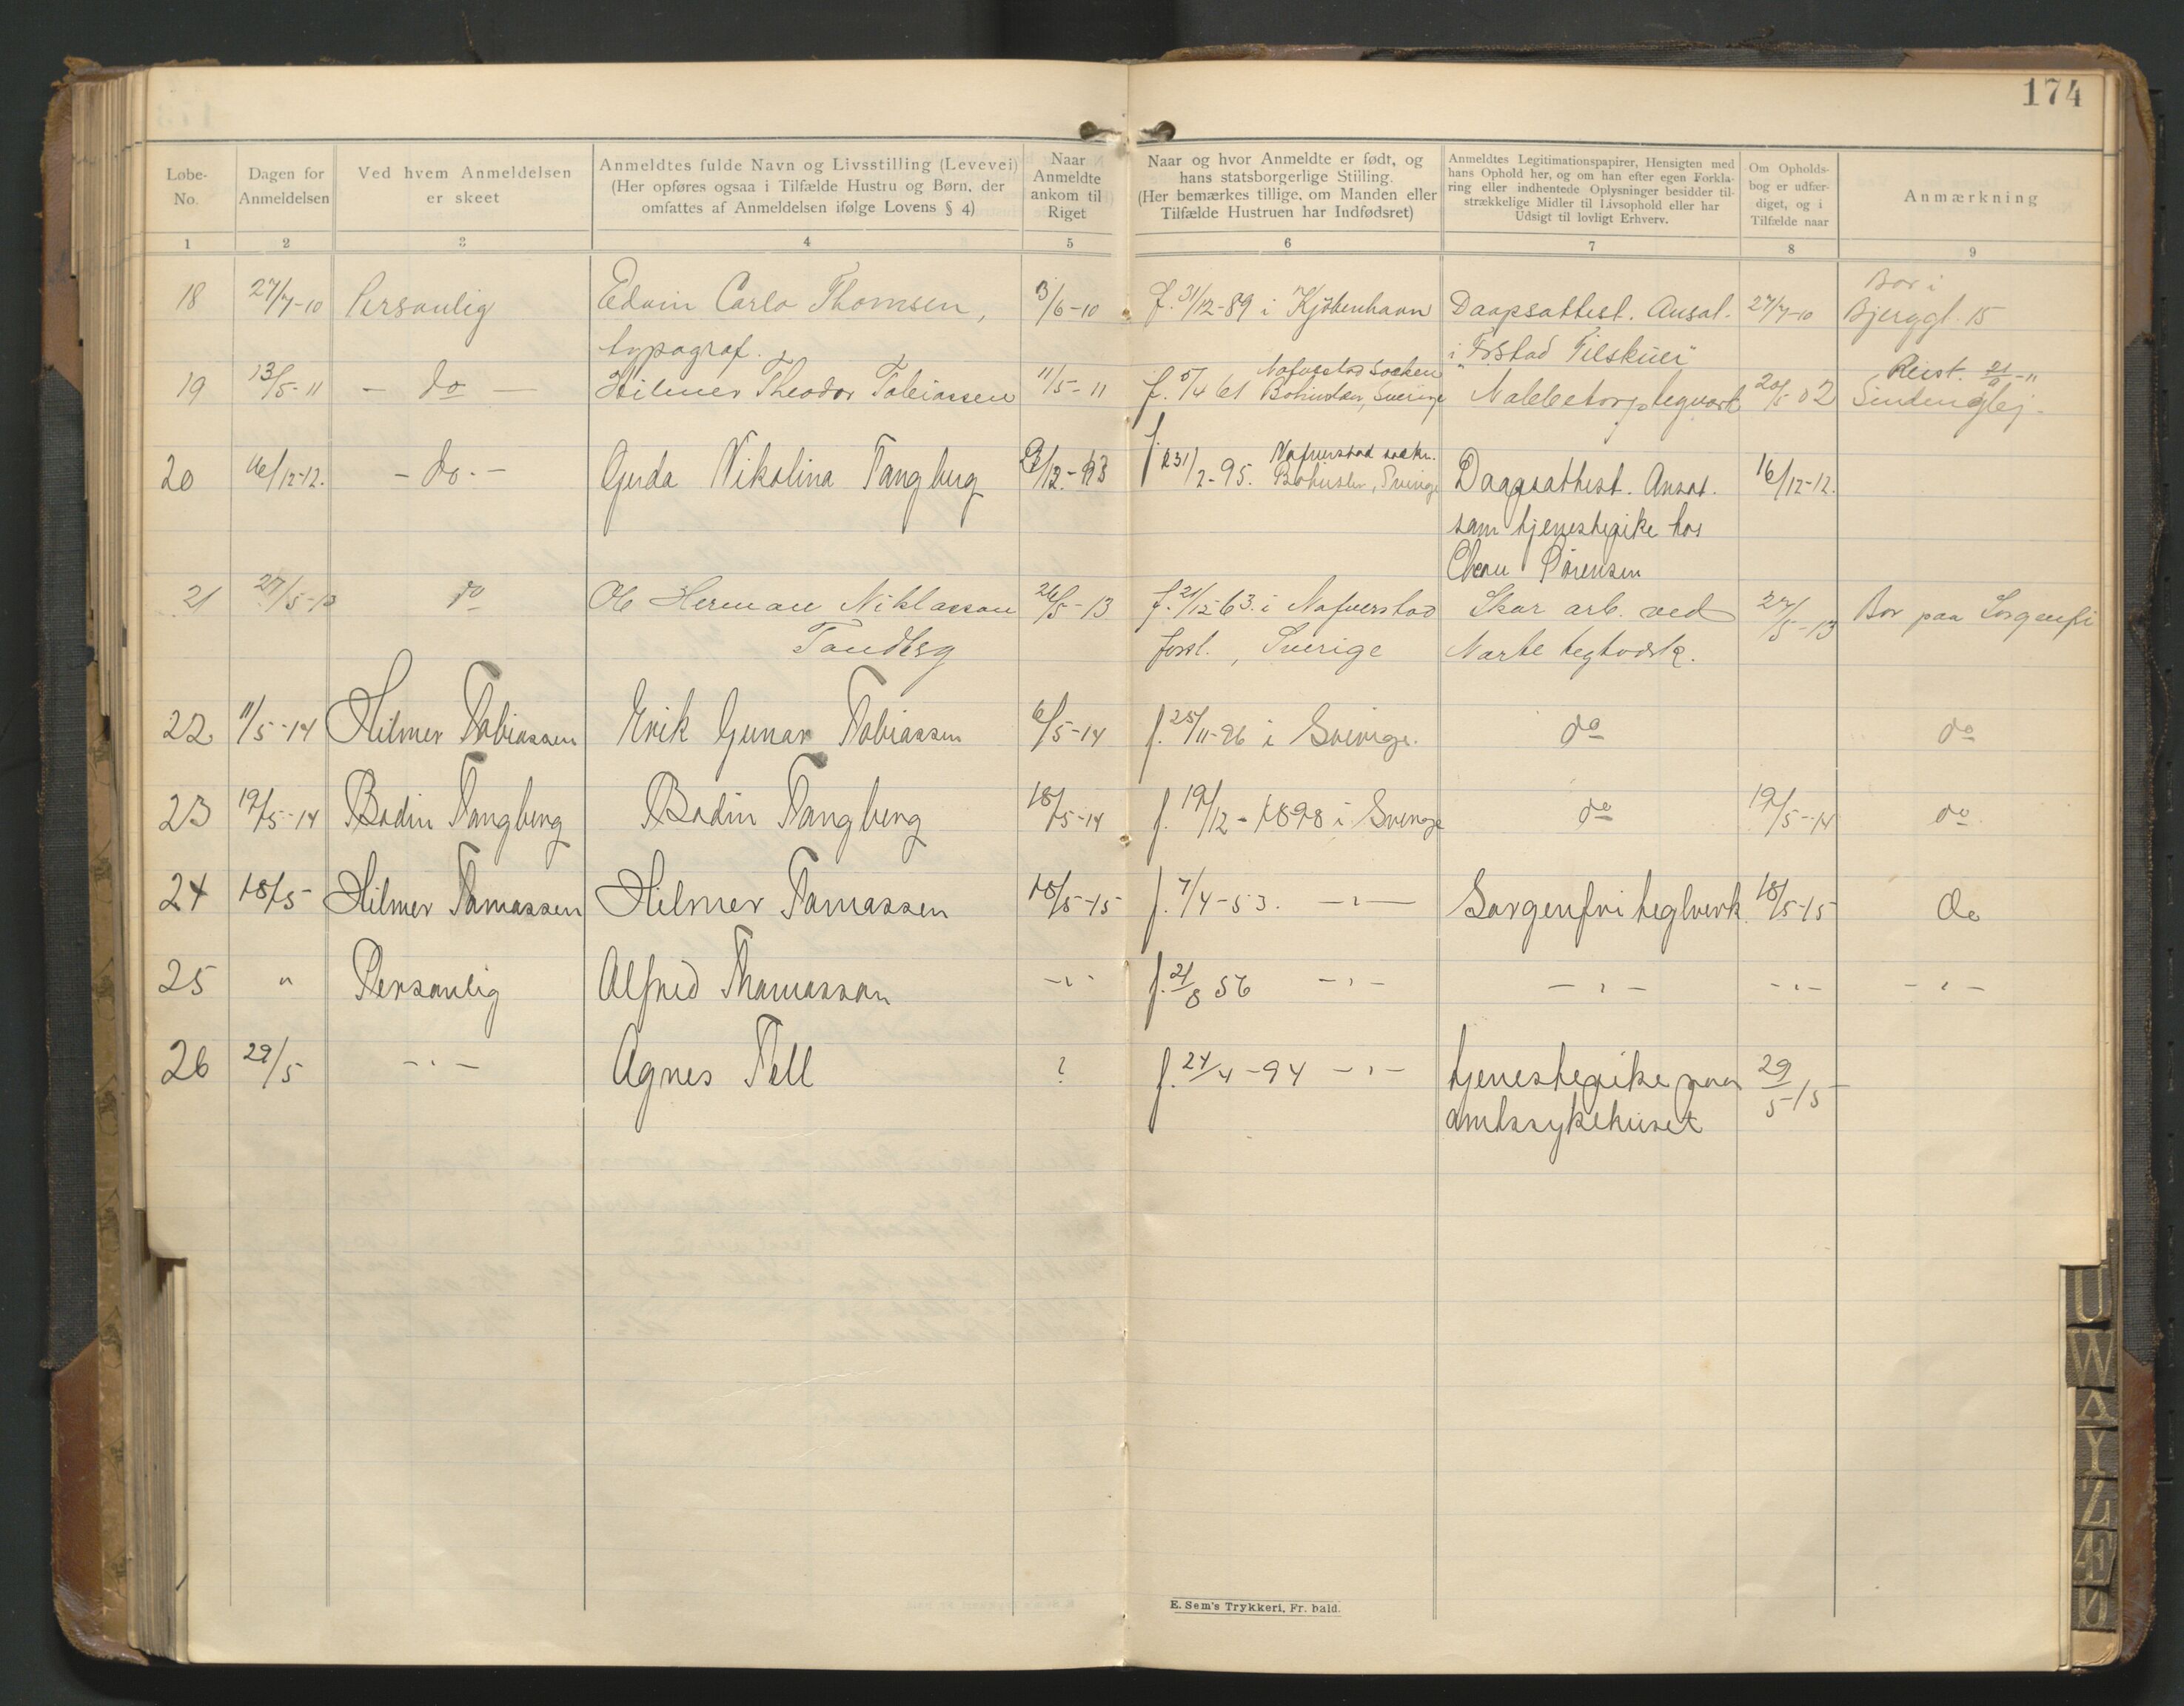 174
Løbe-No. Dagen for Anmeldelsen Ved hvem Anmeldelsen er skeet Anmeldtes fulde Navn og Livsstilling (Levevei) (Her opføres ogsaa i Tilfælde Hustru og Børn, der omfattes af Anmeldelsen ifølge Lovens § 4) Naar Anmeldte ankom til Riget Naar og hvor Anmeldte er født, og hans statsborgerlige Stiiling. (Her bemærkes tillige, om Manden eller Tilfælde Hustruen har Indfødsret) Anmeldtes Legitimationspapirer, Hensigten med hans Ophold her, og om han efter egen Forklaring eller indhentede Oplysninger besidder tilstrækkelige Midler til Livsophold eller har Udsigt til lovligt Erhverv. Om Opholdsbog er udfærdiget, og i Tilfælde naar Anmærkning
1 2 3 4 5 6 7 8 9
18 27/7-10 Personlig Edvin Carlo Thomsen, 3/6-10 f. 31/12-89 i Kjöbenhavn Daapsattest. Ansat. 27/7-10 Bor i Bjerggt. 15
typograf. i Tilskuer"
19 13/5-11 - do - Hilmer Theodor Tobiassen 11/5-11 f. 5/4 61 Bohuslän, Sverige 20/5 02 Reist.
20 16/12-12. - do. - Gerda Nikolina Tangberg f. Bohuslen, Sverige Daapsattest. Ansat. 16/12-12.
som tjenestepike hos
Sörensen
21 27/5-13 do Ole Herman Niklasson 26/5-13 f. 21/12-63. i Nafverstad Skar arb. ved 27/5-13 Bor paa Sorgenfri
Tandberg Sverige
22 11/5-14 Hilmer Tobiassen Erik Gunar Tobiassen 6/5-14 f. 25/11-96 i Sverige. do do
23 19/5-14 Bodin Tangberg Bodin Tangberg 18/5-14 f. 19/12-1898 i Sverige do 19/5-14 do
24 18/5 Hilmer Tomassen Hilmer Tomassen 18/5-15 f. 7/4-53. - " - Sorgenfri teglverk. 18/5-15 do
25 " Personlig Alfred Thomasson - " - f. 21/8 56 - " - - " - - " - - " -
26 29/5 - " - Agnes Tell ? f. 24/4-94 - " - tjenestepike paa 29/5-15
amtssykehuset
E. Sem's Trykkeri, Fr. hald.
U
W
Y
Z
Æ
Ø